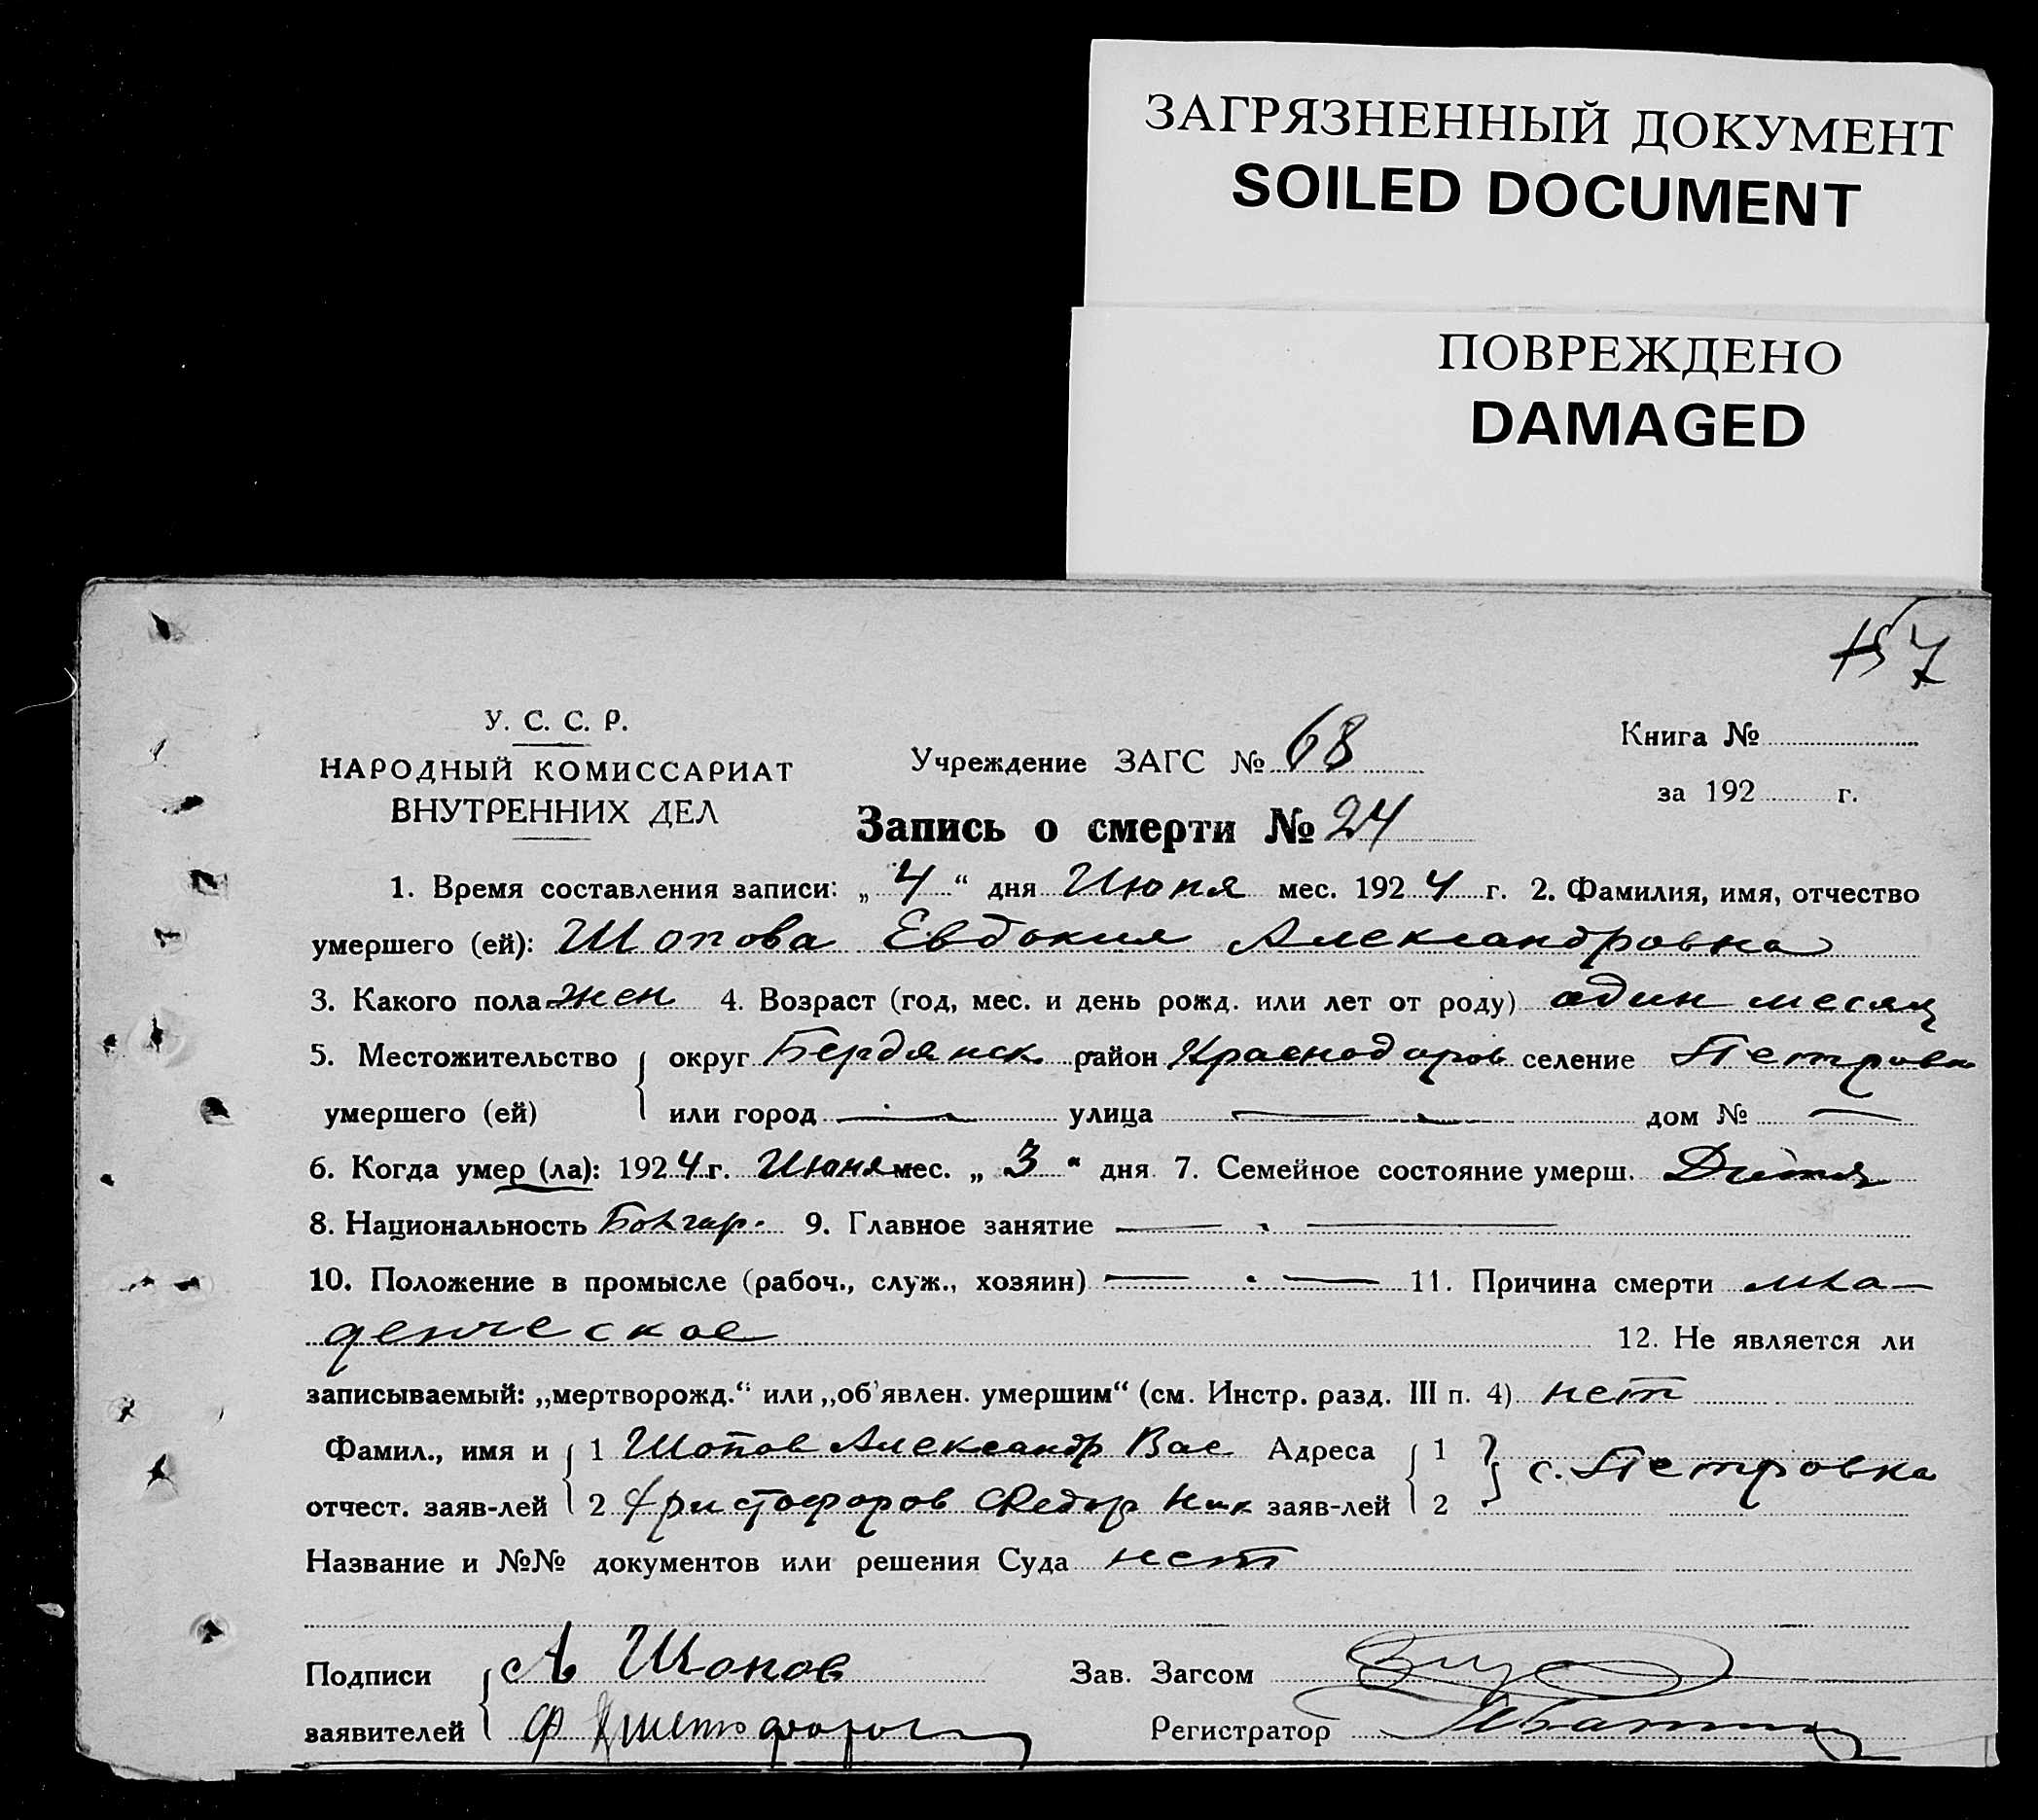 ЗАГРЯЗНЕННЫЙ ДОКУМЕНТ
SOILED DOCUMENT
ПОВРЕЖДЕНО
DAMAGED
7
У. С. С. Р.
НАРОДНЫЙ КОМИССАРИАТ
ВНУТРЕННИХ ДЕЛ
Учреждение ЗАГС № 68
Книга №
за 192 г.
Запись о смерти № 24
1. Время составления записи: „ 4 “ дня Июня мес. 192 4 г. 2. Фамилия, имя, отчество
умершего (ей): Шопова Евдокия Александровна
3. Какого пола жен 4. Возраст (год, мес. и день рожд. или лет от роду) один месяц
5. Местожительство округ Бердянск район Краснодаров селение Петровка
умершего (ей) или город — улица — дом № —
6. Когда умер (ла): 192 4 г. Июня мес. „ 3 “ дня 7. Семейное состояние умерш. Дитя
8. Национальность Болгар. 9. Главное занятие —
10. Положение в промысле (рабоч., служ., хозяин) — 11. Причина смерти мла-
денческое 12. Не является ли
записываемый: „мертворожд.“ или „об'явлен. умершим“ (см. Инстр. разд. III п. 4) нет
Фамил., имя и 1 Шопов Александр Вас Адреса 1 с. Петровка
отчест. заяв-лей 2 Христофоров Федор Ник заяв-лей 2
Название и №№ документов или решения Суда нет
Подписи А Шопов Зав. Загсом
заявителей Ф Христофоров Регистратор